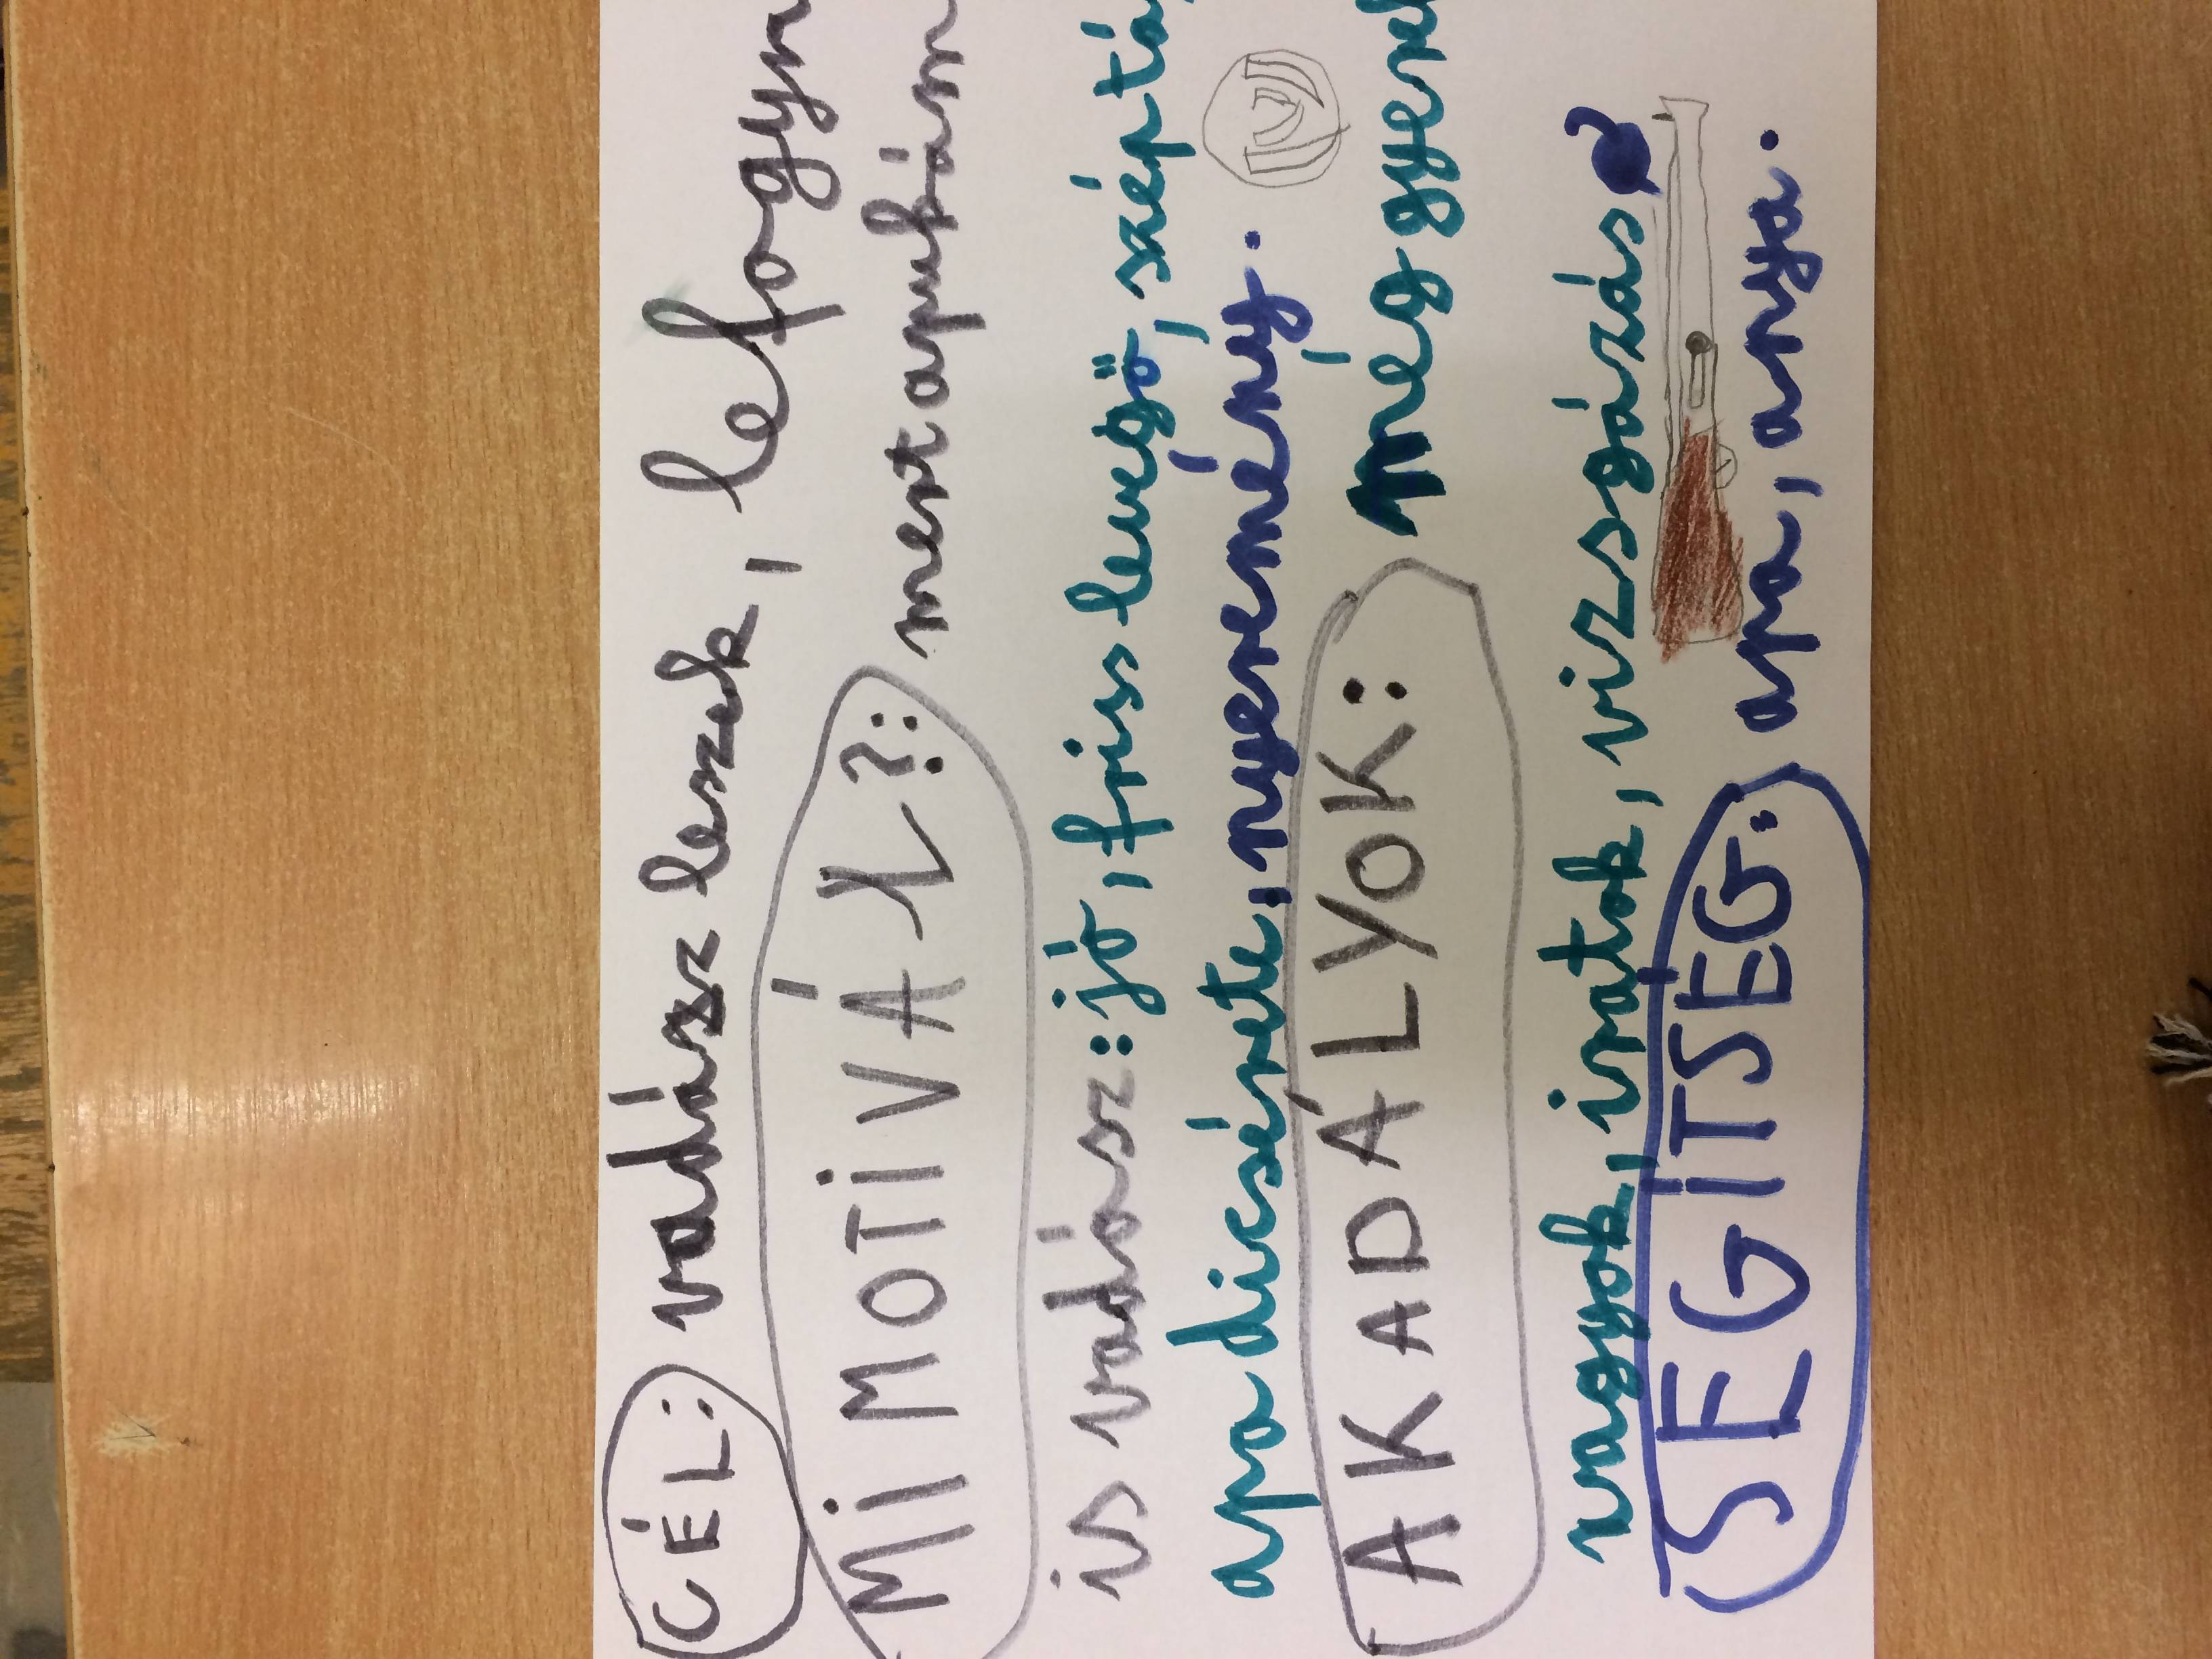 CÉL: vadász leszek, lefogyn
MI MOTIVÁL?: mert apukám
is vadász: jó, friss levegő, széptá
apa dicsérete, nyeremény.
AKADÁLYOK: még gyerek
vagyok, iratok, vizsgázás
SEGÍTSÉG: apa, anya.